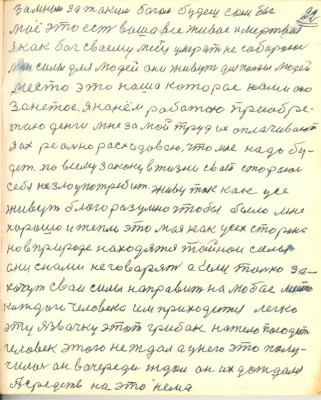 22
за мною за таким богом будем сам бог
моё это есть ваша все живые и мертвые
я как бог своему телу умирать не собираюсь
мои силы для людей они живут для людей
место это наша которое нами оно
занетое. я на нём работаю приобре-
таю деньги мне за мой труд их оплачивают
я их реально расходоваю, что мне надо бу-
дет. по всему закону в жизни свой стороны
себя не злоупотребит. живу так как усе
живут благоразумно чтобы было мне
хорошо и тепло это моя как усех сторона
но в природе находятся тайной силы
они с нами не говорят а если только за-
хотут сваи силы направить на любое место
каждого человека им приходется легко
эту язвачку этот грибак на тело посадить
человек этого не ждал а у него это полу-
чилось он в очереди ждал он их дождался
А средств на это нема